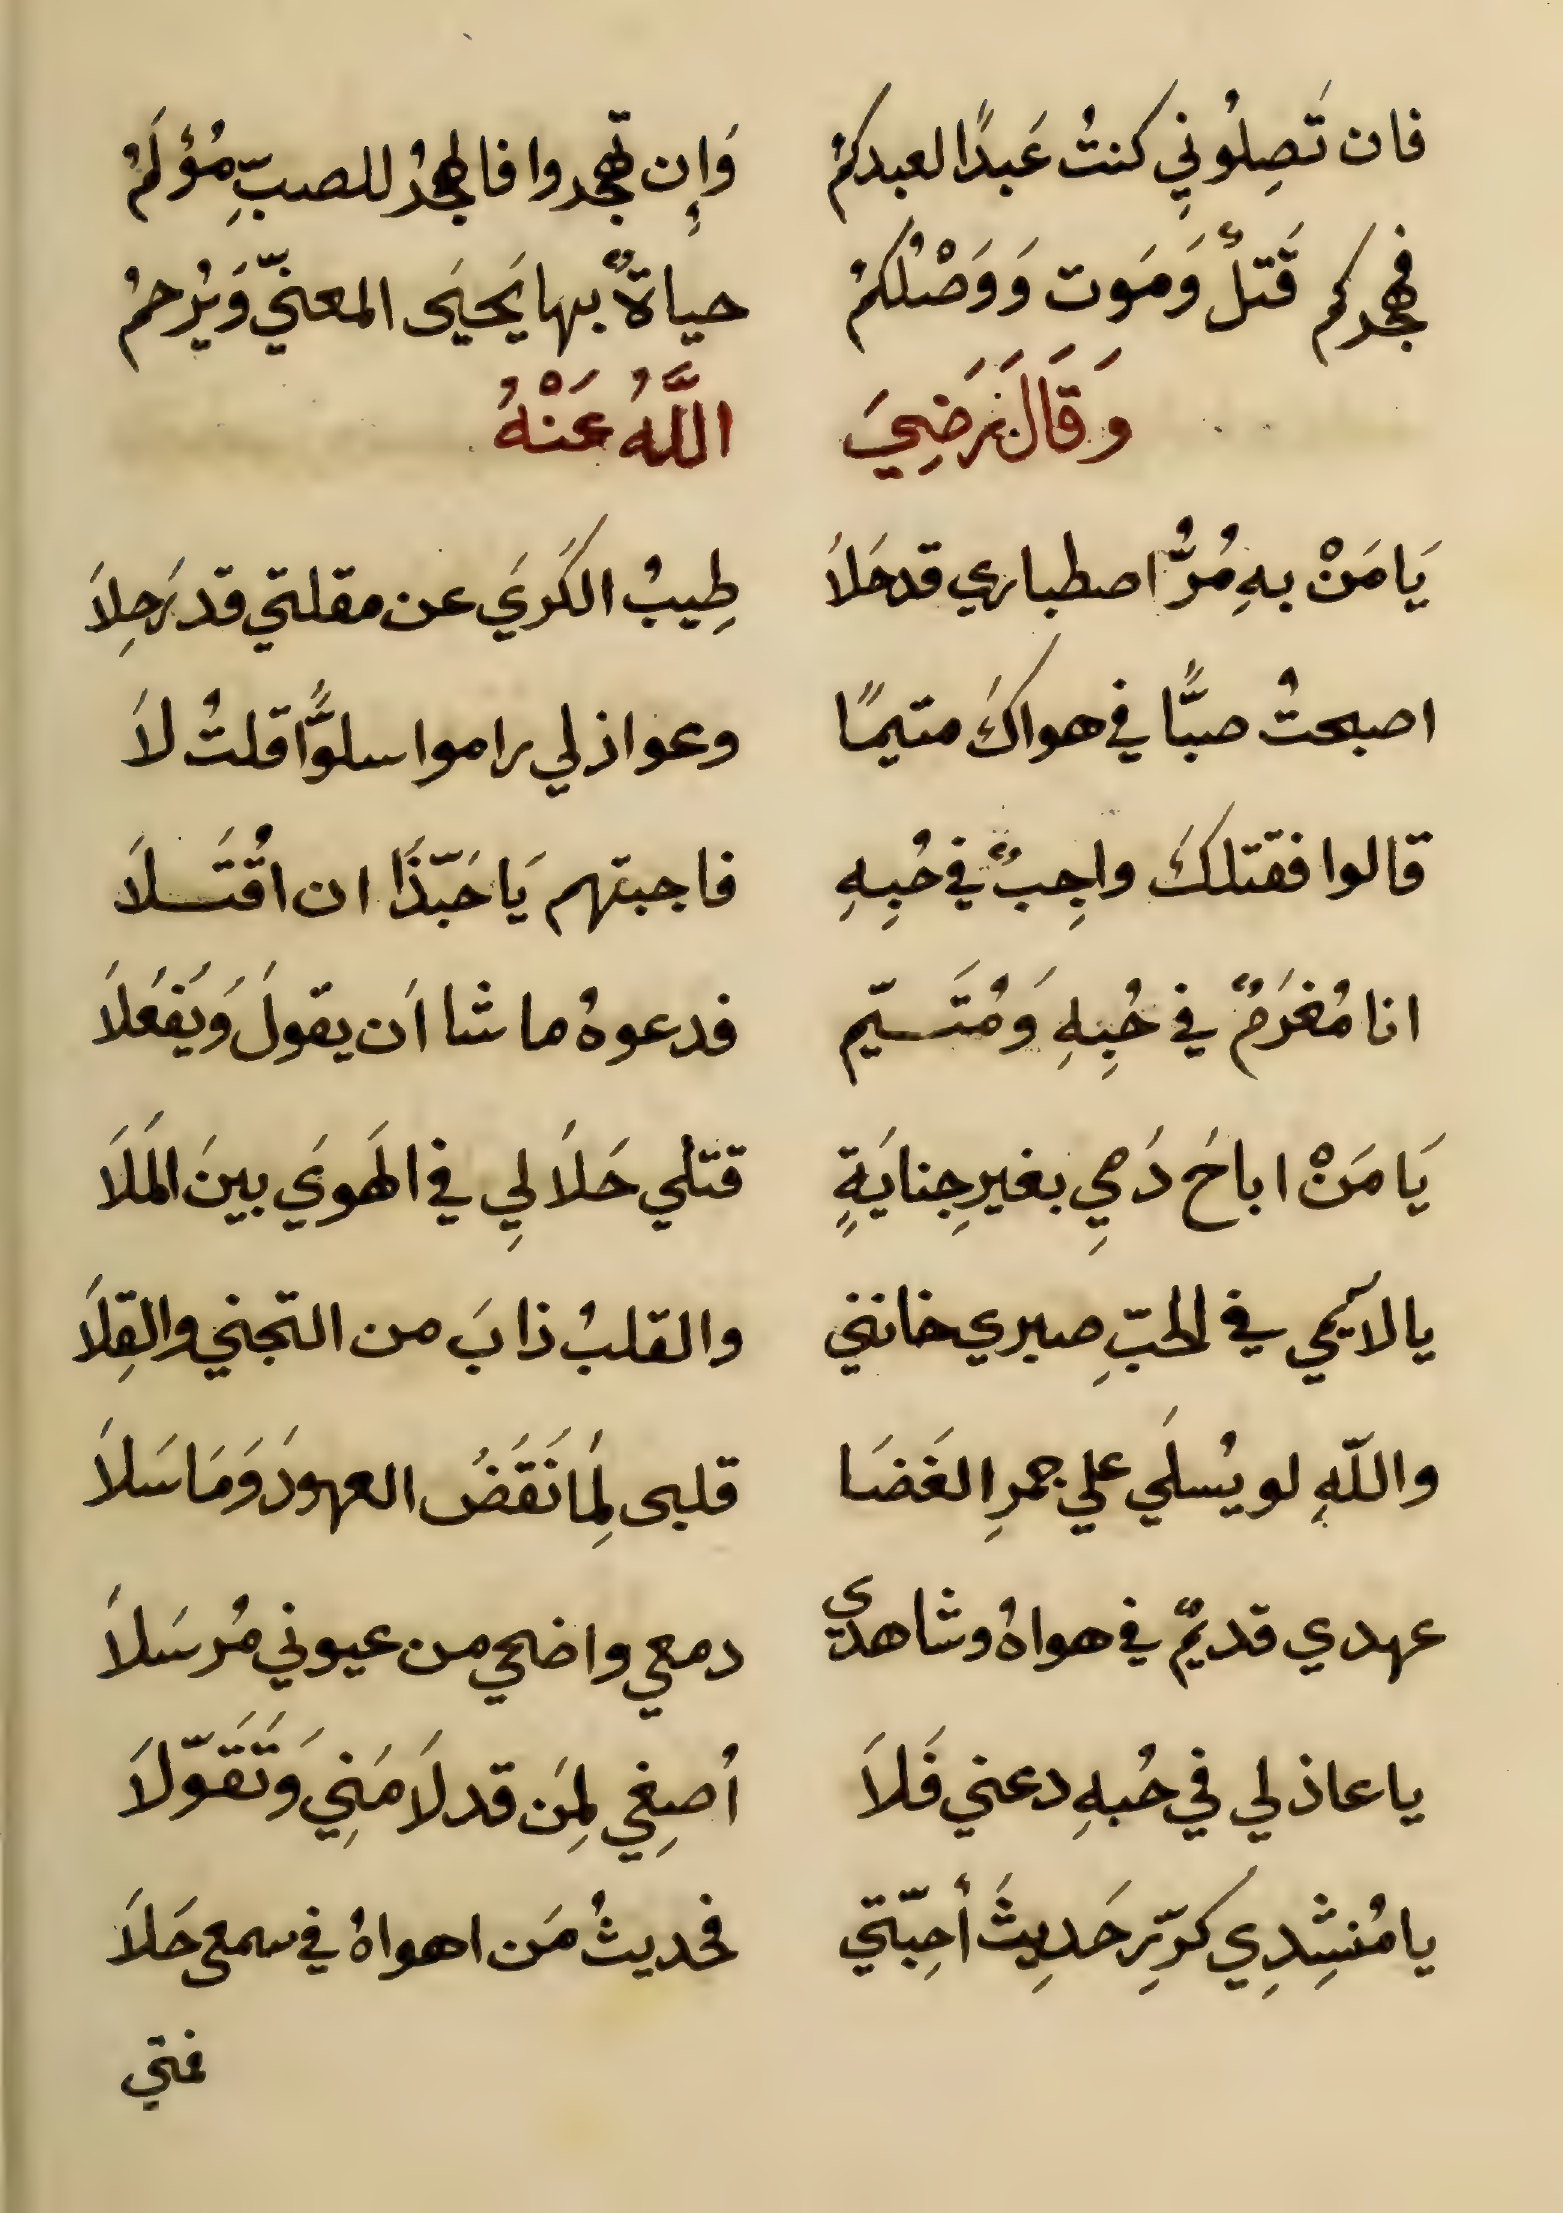 فان تَصِلُونِي كنتُ عَبدًا لعبدكمُ وَإِن تهجروا فالهجرُ للصبِّ مُؤلَمُ
فهجركم قَتلٌ وَمَوت وَوَصْلُكمُ حياةٌ بها يَحيَى المعنيّ وَيُرحمُ
وَقَالَ رَضِيَ اللَّهُ عَنْهُ
يَا مَنْ بهِ مُرُّ اصطباري قد حَلاَ طِيبُ الكَرَي عن مقلتي قد رَحِلاَ
اصبحتُ صبًّا في هواكَ متيمًا وعواذلي راموا سلوًّا قلتُ لاَ
قالوا فقتلكَ واجِبٌ في حُبِهِ فاجبتهم يَا حَبّذَا ان اقُتَلاَ
انا مُغرَمٌ في حُبِهِ وَمُتَيّم فدعوهُ ما شا اَن يقولَ وَيَفعَلاَ
يَا مَنْ اباحَ دَمِي بغيرِ جِنايَةٍ قتلي حَلَا لِي في الهَويَ بينَ المَلَا
يا لايمي في الحبّ صبري خانني والقلبُ ذابَ من التجني والقِلَا
واللّهِ لو يُسلَي علي جمرِ الغَضَا قلبى لِمَا نَقَضَ العهودَ وَمَا سَلاَ
عهدي قديمٌ في هواهُ وشاهدي دمعي واضحي من عيوني مُرسَلاَ
يا عاذلي في حُبهِ دعني فَلاَ أصغِي لِمَن قد لاَمَنِي وَتَقَوّلاَ
يا مُنشِدِي كرّر حَدِيثَ أحِبّتي فحديثُ مَن اهواهُ في سمعى حَلاَ
فمتي